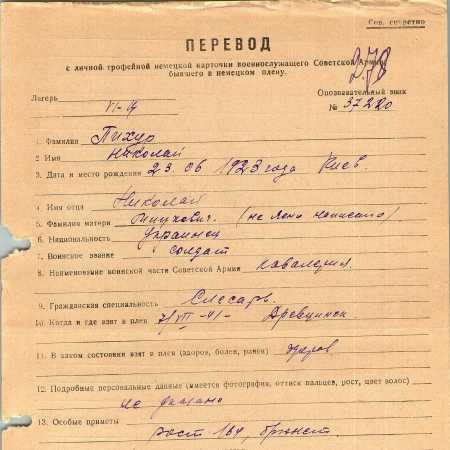 Сов. секретно
ПЕРЕВОД
с личной трофейной немецкой карточки военнослужащего Советской Армии,
бывшего в немецком плену.
278
Лагерь
VI-
Опознавательный знак
№ 37220
1. Фамилия Пихур
2. Имя Николай
3. Дата и место рождения 23.06 1923 года Киев.
4. Имя отца Николай
5. Фамилия матери Мицкевич. (не ясно написано)
6. Национальность украинец
7. Воинское звание солдат
8. Наименование воинской части Советской Армии кавалерия
9. Гражданская специальность Слесарь.
10. Когда и где взят в плен 7/VII-41-
11. В каком состоянии взят в плен (здоров, болен, ранен) здоров.
12. Подробные персональные данные (имеется фотография, оттиск пальцев, рост, цвет волос)
не указано
13. Особые приметы
рост 164, брюнет